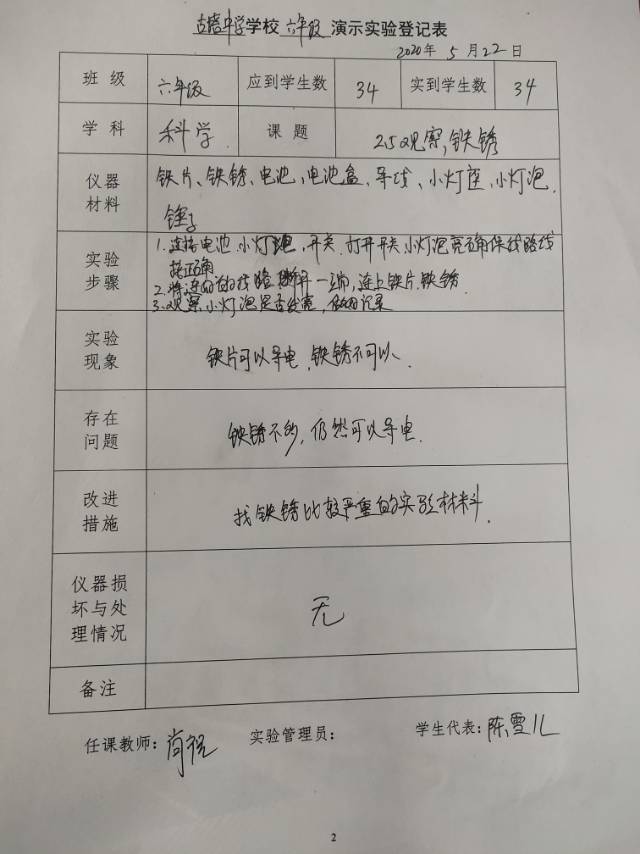 中学学校六年级演示实验登记表
2020年5月22日
班级 六年级 应到学生数 34 实到学生数 34
学科 科学 课题 2.5观察铁锈
仪器材料 铁片、铁锈、电池、电池盒、导线、小灯座、小灯泡、
锤子
实验步骤 1.连接电池,小灯泡,开关.打开开关,小灯泡亮确保线路线
接正确
2.将连好的线路断开一端,连上铁片.铁锈.
3.观察小灯泡是否发亮,做好记录
实验现象 铁片可以导电,铁锈不可以.
存在问题 铁锈不多,仍然可以导电.
改进措施 找铁锈比较严重的实验材料.
仪器损坏与处理情况 无
备注
任课教师:肖 实验管理员: 学生代表:陈雪儿
2